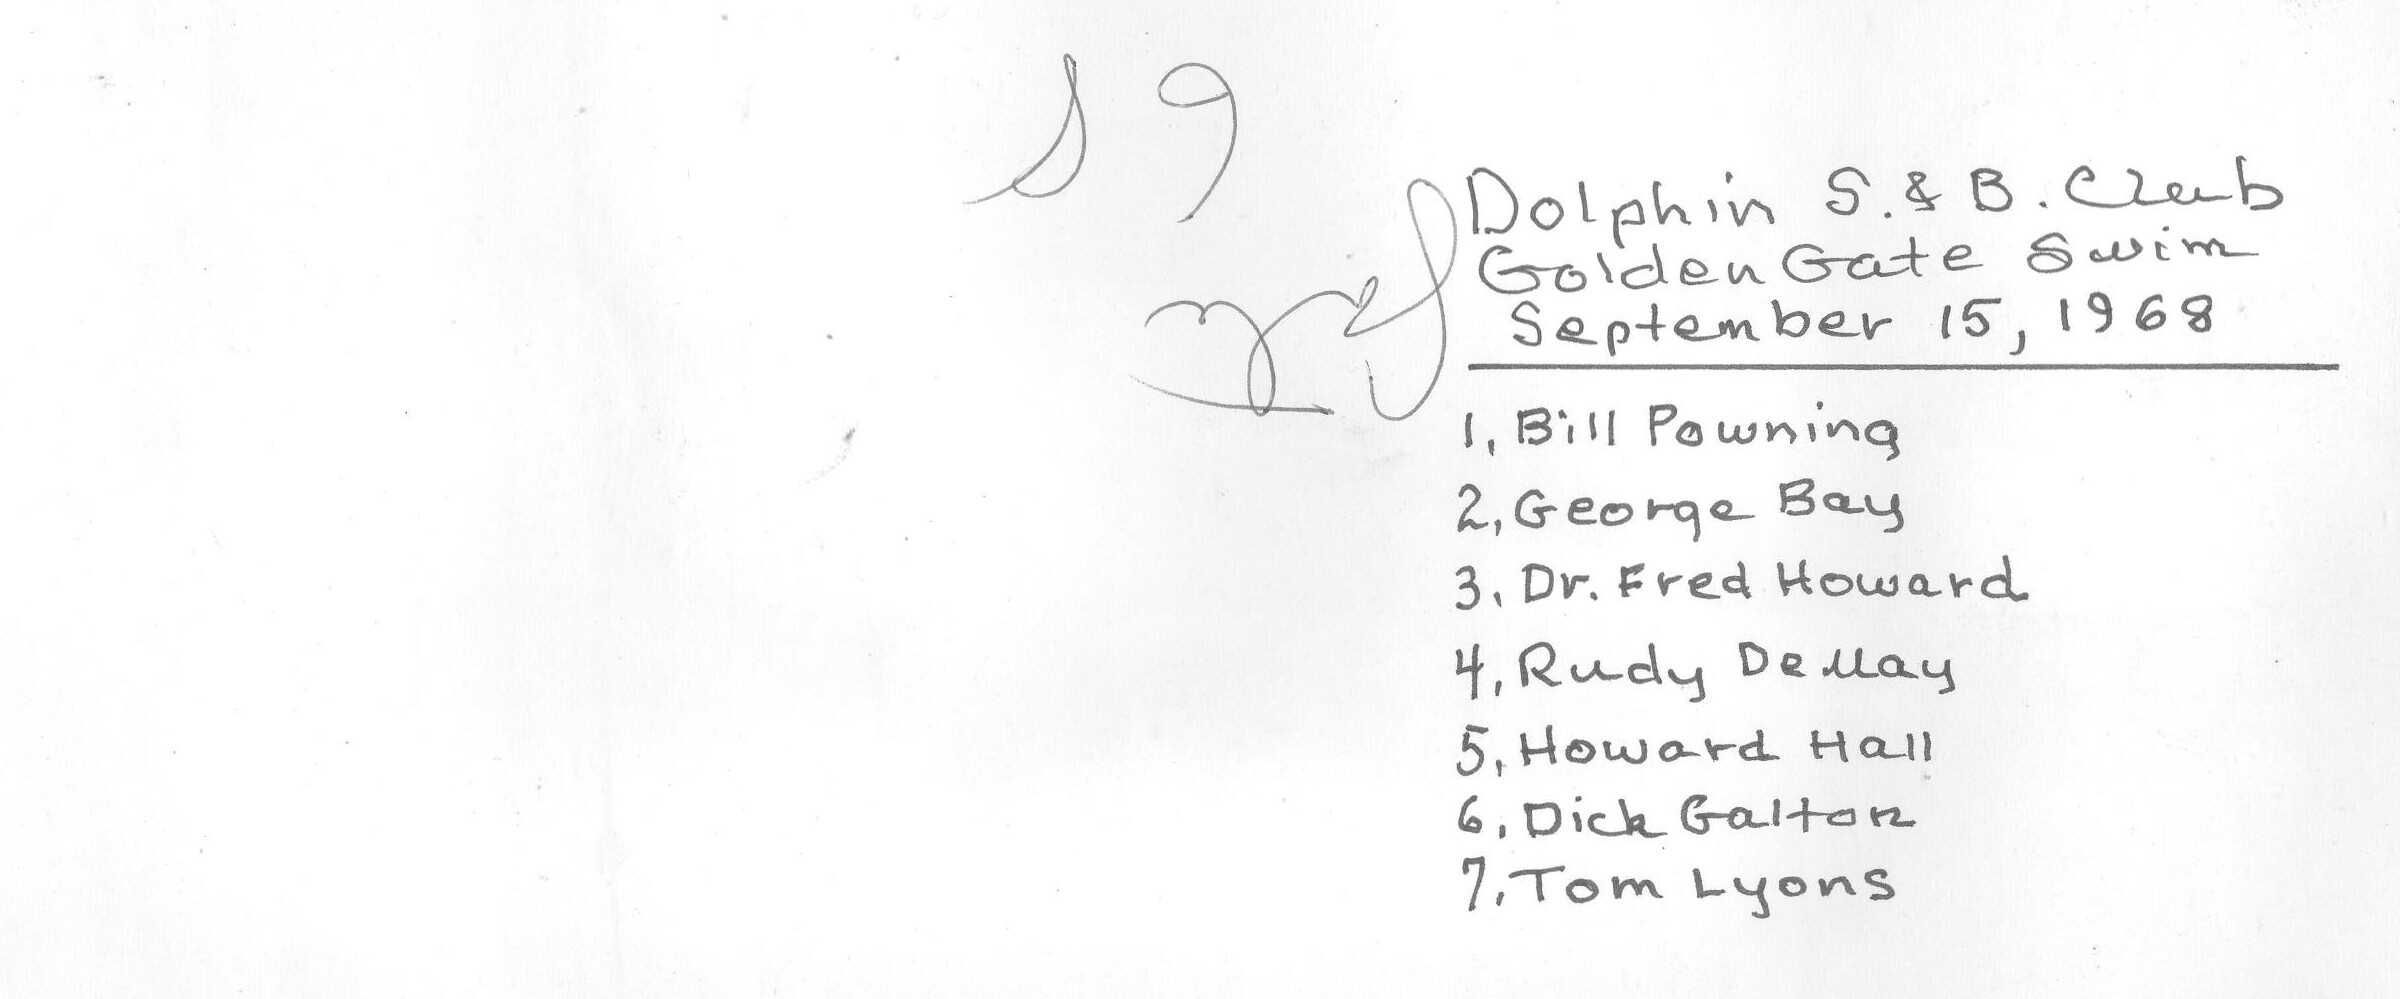 Dolphin S. & B. Club
Golden Gate Swim
September 15, 1968
1, Bill Powning
2, George Bay
3, Dr. Fred Howard
4, Rudy DeMay
5, Howard Hall
6, Dick Galton
7, Tom Lyons